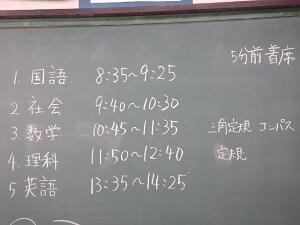 5分前着席
1. 国語 8:35~9:25
2 社会 9:40~10:30
3 数学 10:45~11:35 三角定規 コンパス
4. 理科 11:50~12:40 定規
5 英語 13:35~14:25